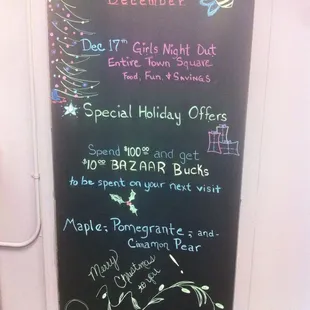 December
Dec 17th Girls Night Out
Entire Town Square
Food, Fun, & Savings
Special Holiday Offers
Spend $100.00 and get
$10.00 BAZAAR Bucks
to be spent on your next visit
Maple, Pomegrante, and
Cinnamon Pear
Merry
Christmas
to you!